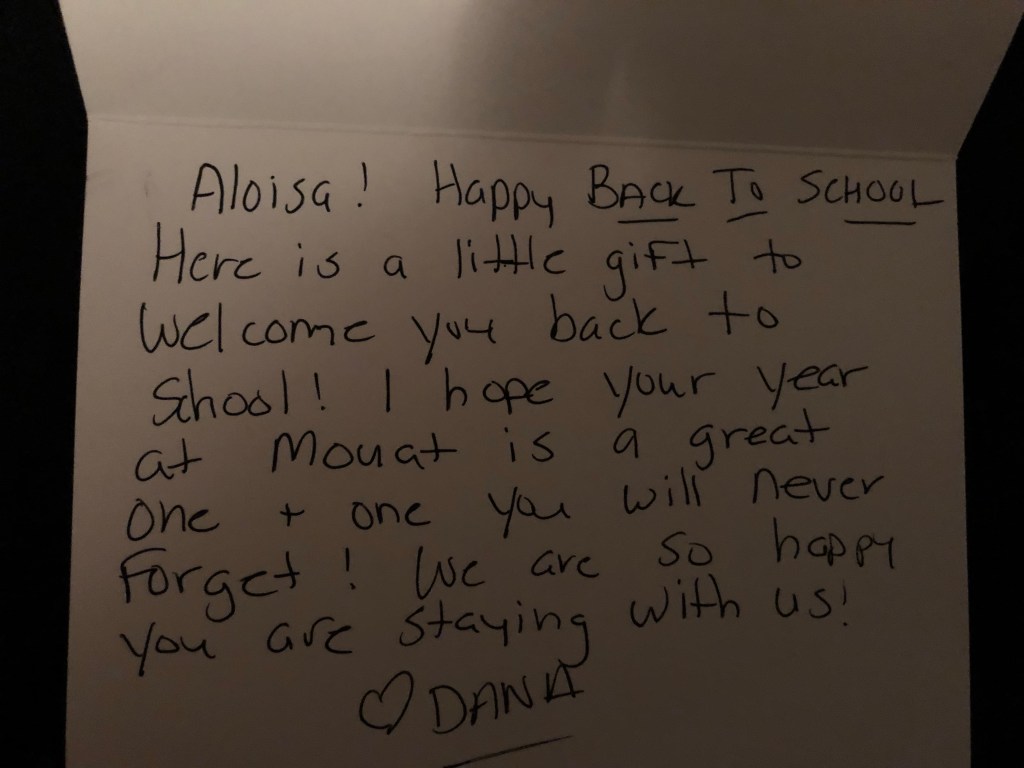 Aloisa! Happy BACK TO SCHOOL
Here is a little gift to
Welcome you back to
School! I hope your year
at Mouat is a great
one + one you will never
Forget! We are so happy
you are staying with us!
♡ DANA